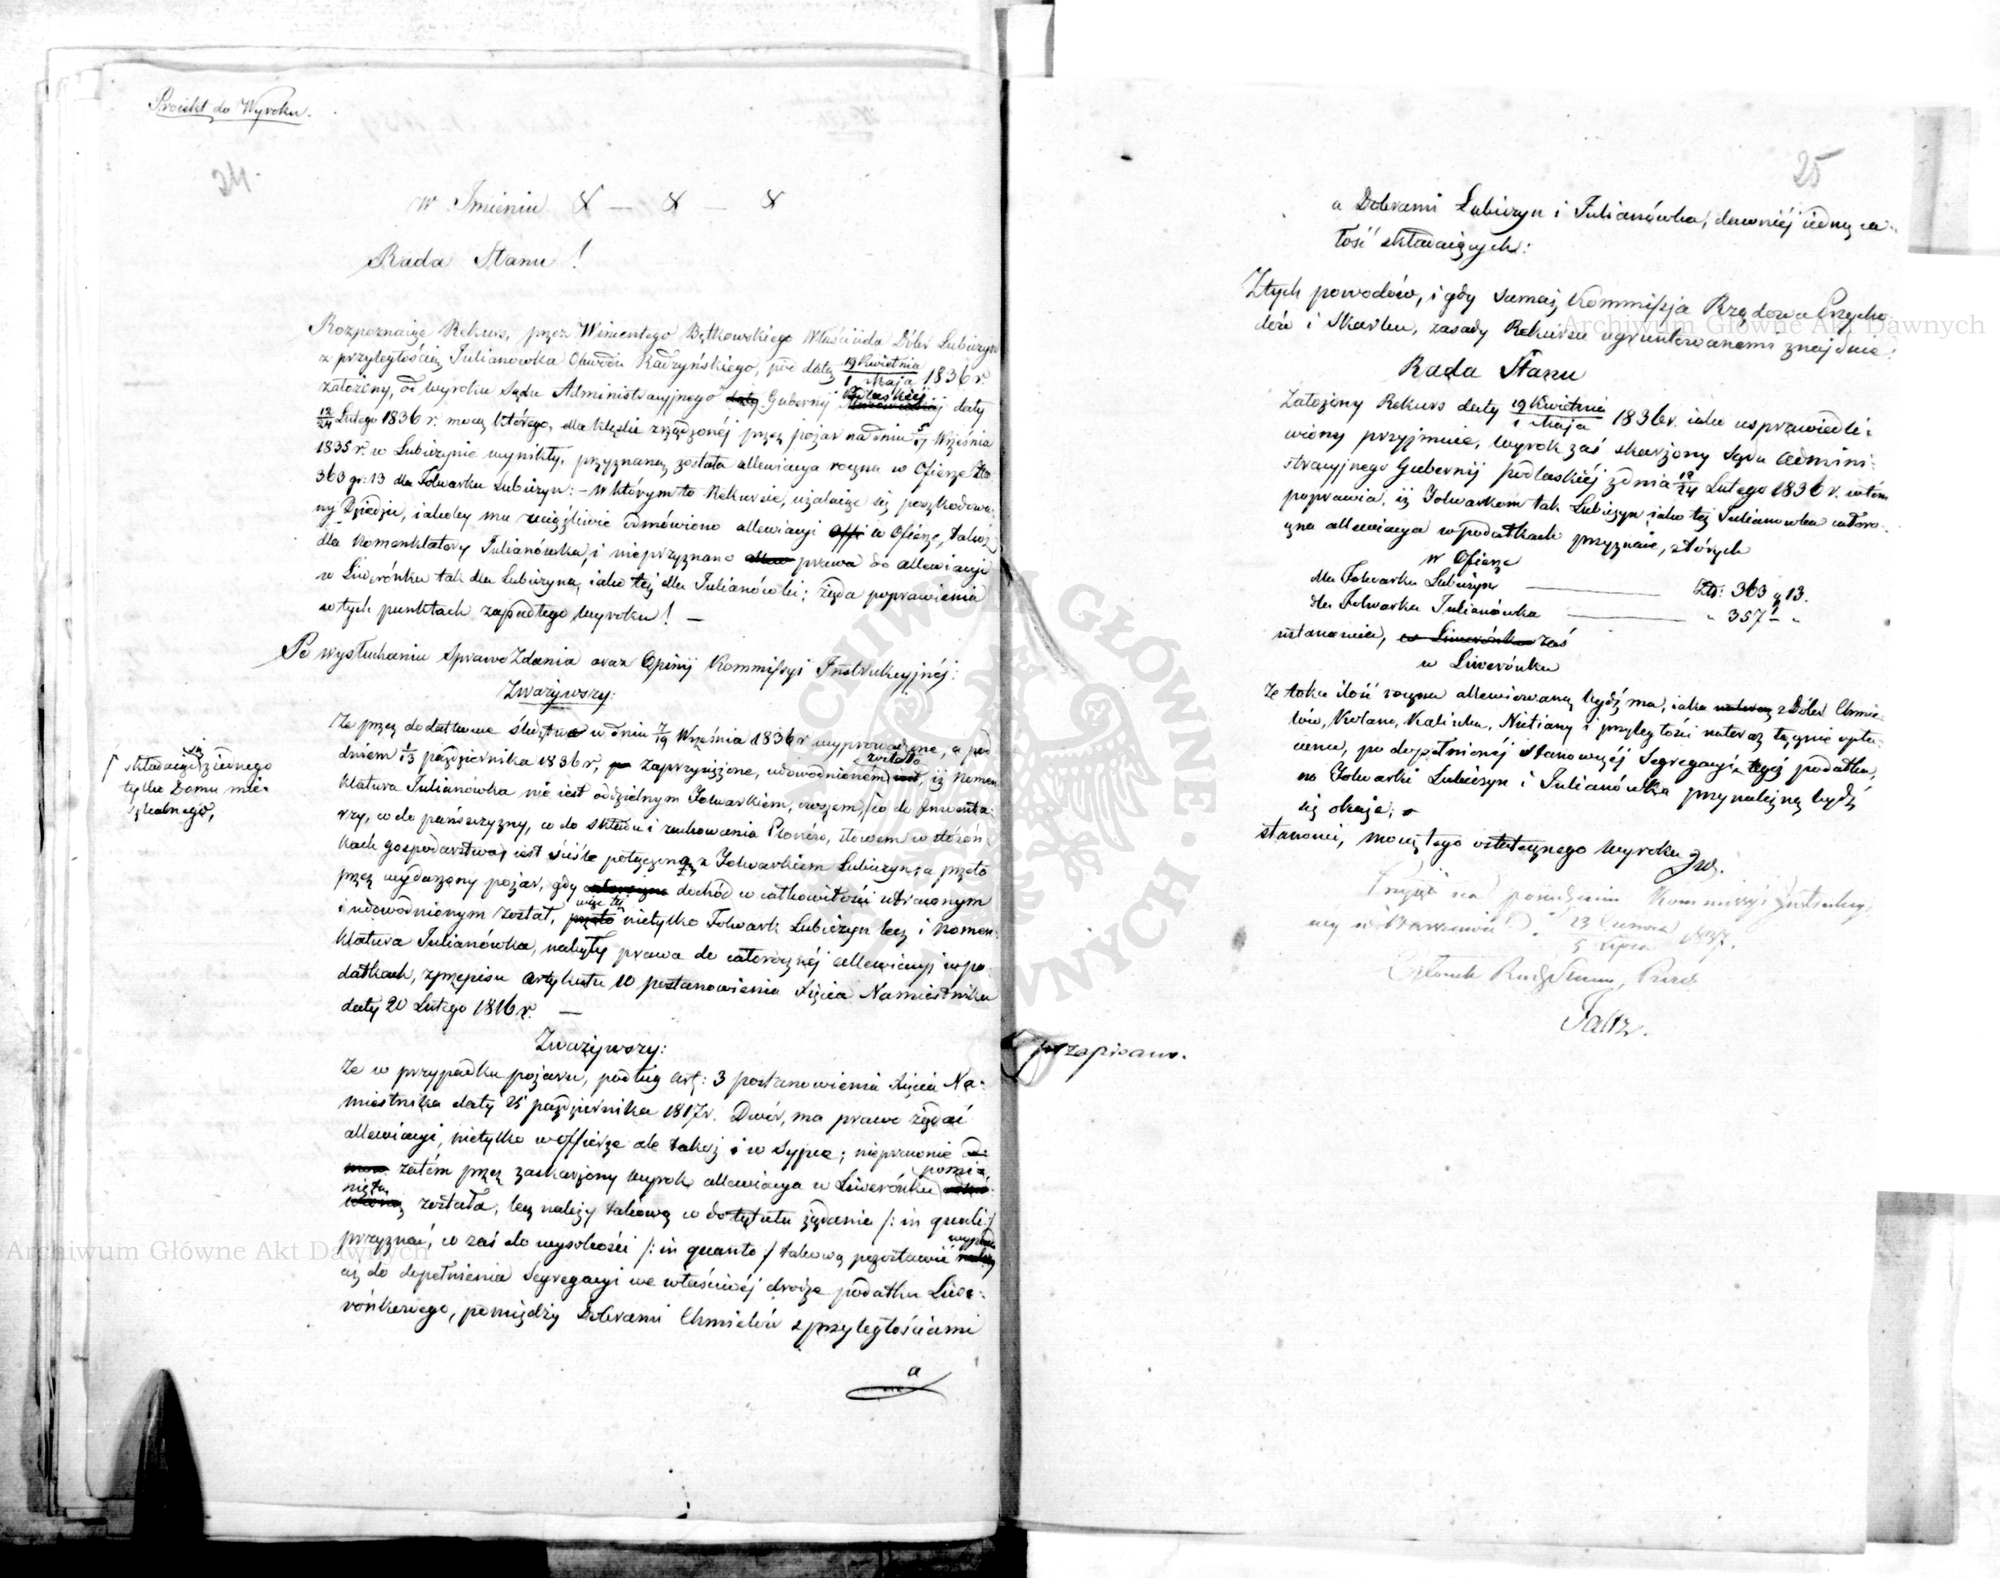 Proiekt do Wyroku.
24.
w Imieniu X — X — X
Rada Stanu!
Rozpoznaiąc Rekurs, przez Wincentego Bętkowskiego Właściciela Dóbr Lubiczyn
z przyległością Julianówka Obwodu Radzyńskiego, pod datą 19 Kwietnia / 1 Maja 1836 r.
założony, od wyroku Sądu Administracyjnego Gubernij Podlaskiéj daty
12/24 Lutego 1836 r. mocą którego, dla klęski zrządzonéj przez pożar na dniu 5/17 Września
1835 r. w Lubiczynie wynikły, przyznaną została allewiacya roczna w Ofierze Zło
363 gr: 13 dla Folwarku Lubiczyn: – w którym to Rekursie, użalaiąc się poszkodowa-
ny Dziedzic, iakoby mu uciążliwie odmówiono allewiacyi w Ofierze, także
dla Nomenklatury Julianówka, i nieprzyznano prawa do allewiacyi
w Liwerónku tak dla Lubiczyna, iako też dla Julianówki; żąda poprawienia
w tych punktach zapadłego wyroku! —
Po wysłuchaniu Sprawozdania oraz Opinij Kommissyi Instrukcyjnéj:
Zważywszy:
że przez dodatkowe śledztwo w dniu 7/19 Września 1836 r. wyprowadzone, a pod
dniem 1/13 października 1836 r. zaprzysiężone, udowodnionem zostało, iż Nomen
klatura Julianówka nie iest oddzielnym Folwarkiem, owszem, co do Inwenta-
rzy, co do pańszczyzny, co do składu i zachowania Plonów, słowem w stósun-
kach gospodarstwa, iest ściśle połączoną z Folwarkiem Lubiczyn; a przeto
przez wydarzony pożar, gdy dochód w całkowitości utraconym
i udowodnionym został, więc też nietylko Folwark Lubiczyn lecz i Nomen-
klatura Julianówka, nabyły prawa do całorocznéj allewiacyi w po-
datkach, z przepisu artykułu 10 postanowienia Xięcia Namiestnika
daty 20 Lutego 1816 r. —
składaiąca się z iednego
tylko Domu mie-
szkalnego,
Zważywszy:
że w przypadku pożaru, podług art: 3 postanowienia Xięcia Na-
miestnika daty 25 października 1817 r. Dwór, ma prawo żądać
allewiacyi, nietylko w offierze ale także i w sypce; nieprawnie
zatém przez zaskarżony wyrok allewiacya w Liwerónku pomi-
niętą została, lecz należy takową co do tytułu żądania /: in quali :/
przyznać, co zaś do wysokości /: in quanto :/ takową pozostawić wypada
aż do dopełnienia Segregacyi we właściwéj drodze podatku Liwe-
rónkowego, pomiędzy Dobrami Chmielów z przyległościami
a
25
a Dobrami Lubiczyn i Julianówka, dawniéj iedną ca-
łość składaiących:
Z tych powodów, i gdy samaż Kommissja Rządowa Przycho
dów i Skarbu, zasady Rekursu ugruntowanemi znajduie:
Rada Stanu
Założony Rekurs daty 19 Kwietnia / 1 Maja 1836 r. iako usprawiedli-
wiony przyjmuie, wyrok zaś skarżony Sądu Admini-
stracyjnego Gubernij Podlaskiéj z dnia 12/24 Lutego 1836 r. w tém
poprawia, iż Folwarkom tak Lubiczyn iako też Julianówka całoro-
czna allewiacya w podatkach przyznaie, z których
w Ofierze
dla Folwarku Lubiczyn — Zło: 363 g 13.
dla Folwarku Julianówka — „ 357 „ 1 „
ustanawia, zaś
w Liwerónku
że taka ilość roczna allewiowaną bydź ma, iaka z Dóbr Chmie-
lów, Kalinka, i przyległości nateraz łącznie opła-
cana, po dopełnionéj stanowczéj Segregacyi tegoż podatku,
na Folwarki Lubiczyn i Julianówka przynależną bydź
się okaże;
stanowi, mocą tego ostatecznego wyroku
Przyjęte na posiedzeniu Kommissyi Instrukcy-
nej w Warszawie D. 23 Czerwca / 5 Lipca 1837.
Członek Rady Stanu,
Faltz.
przepisano.
Archiwum Główne Akt Dawnych
Archiwum Główne Akt Dawnych
ARCHIWUM GŁÓWNE AKT DAWNYCH